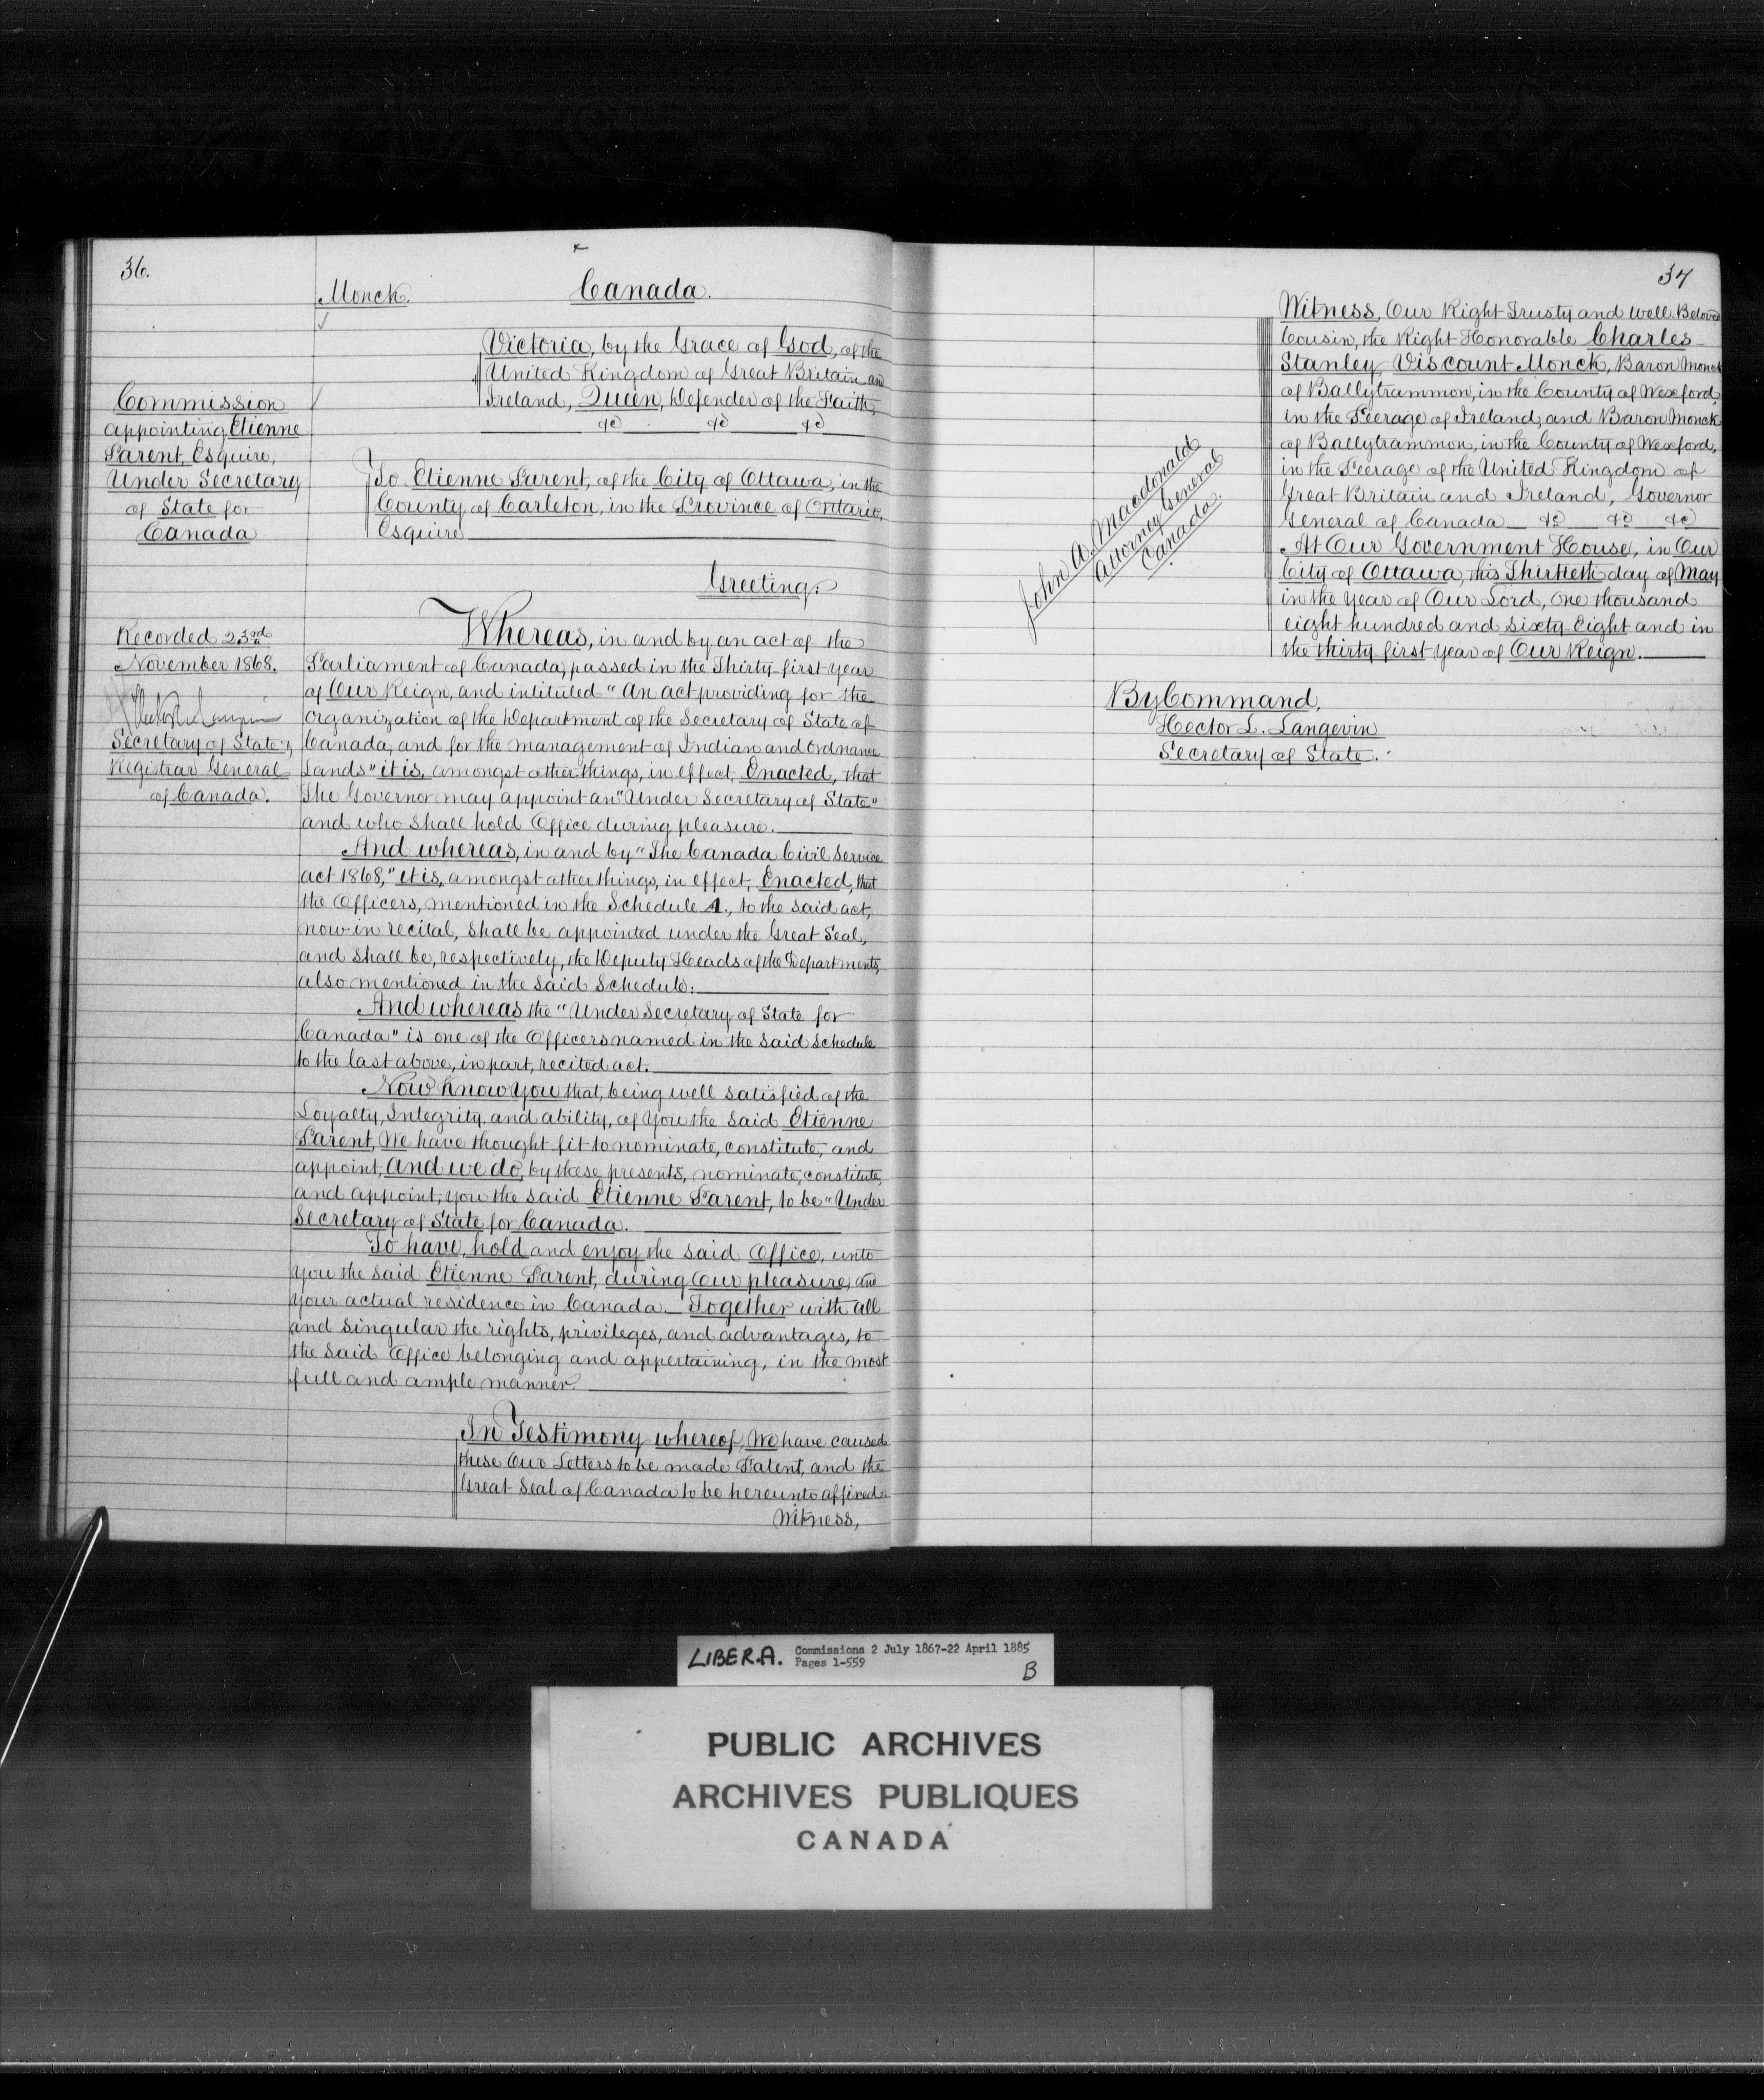 36.
Monck.
Canada.
Victoria, by the Grace of God, of the
United Kingdom of Great Britain and
Ireland, Queen, Defender of the Faith,
&c &c &c
Commission
appointing Etienne
Parent, Esquire,
Under Secretary
of State for
Canada
To Etienne Parent, of the City of Ottawa, in the
County of Carleton, in the Province of Ontario,
Esquire
Greeting:
Recorded 23rd
November 1868.
Secretary of State &
Registrar General
of Canada.
Whereas, in and by an act of the
Parliament of Canada, passed in the Thirty first year
of Our Reign, and intituled "An act providing for the
organization of the Department of the Secretary of State of
Canada, and for the management of Indian and Ordnance
Lands" it is, amongst other things, in effect, Enacted, that
The Governor may appoint an "Under Secretary of State"
and who shall hold Office during pleasure.
And whereas, in and by "The Canada Civil Service
act 1868," it is, amongst other things, in effect, Enacted, that
the Officers, mentioned in the Schedule A., to the said act,
now in recital, shall be appointed under the Great Seal,
and shall be, respectively, the Deputy Heads of the Departments,
also mentioned in the said Schedule:
And whereas the "Under Secretary of State for
Canada" is one of the Officers named in the said Schedule
to the last above, in part, recited act.
Now know You that, being well satisfied of the
Loyalty, Integrity, and ability, of You the said Etienne
Parent, We have thought fit to nominate, constitute, and
appoint, and we do, by these presents, nominate, constitute,
and appoint, you the said Etienne Parent, to be "Under
Secretary of State for Canada.
To have, hold and enjoy the said Office, unto
You the said Etienne Parent, during Our pleasure, and
your actual residence in Canada. Together with all
and singular the rights, privileges, and advantages, to
the said Office belonging and appertaining, in the most
full and ample manner.
In Testimony whereof, We have caused
these Our Letters to be made Patent, and the
Great Seal of Canada to be hereunto affixed.
Witness,
37
Witness, Our Right Trusty and well-Beloved
Cousin, the Right Honorable Charles
Stanley, Viscount Monck, Baron Monck
of Ballytrammon, in the County of Wexford,
in the Peerage of Ireland, and Baron Monck
of Ballytrammon, in the County of Wexford,
in the Peerage of the United Kingdom of
Great Britain and Ireland, Governor
General of Canada &c &c &c
At Our Government House, in Our
City of Ottawa, this Thirtieth day of May
in the Year of Our Lord, One thousand
eight hundred and sixty Eight and in
the thirty first year of Our Reign.
John A. Macdonald
Attorney General
Canada.
By Command,
Hector L. Langevin
Secretary of State.
LIBER.A. Commissions 2 July 1867-22 April 1885
Pages 1-559
B
PUBLIC ARCHIVES
ARCHIVES PUBLIQUES
CANADA